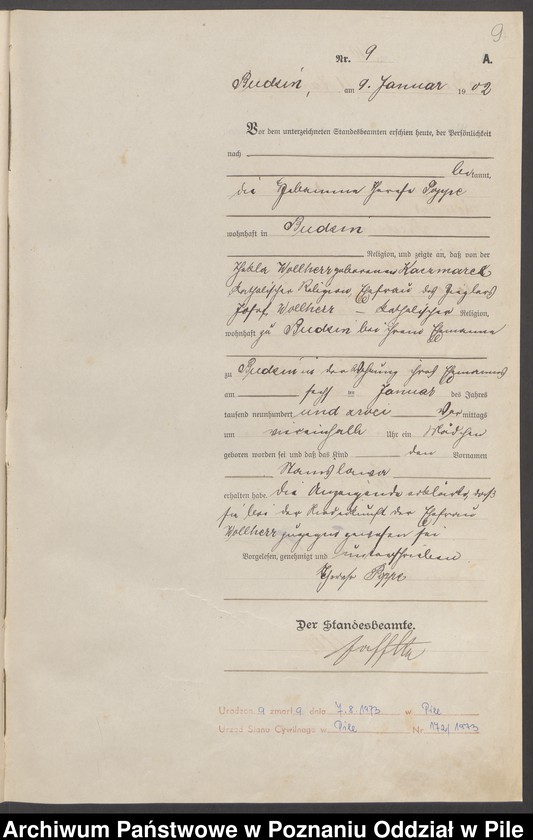 9.
Nr. 9 A.
Budsin, am 9. Januar 1902
Vor dem unterzeichneten Standesbeamten erschien heute, der Persönlichkeit
nach
bekannt,
die Hebamme Therese Poppe
wohnhaft in Budsin
Religion, und zeigte an, daß von der
Thekla Wollherr geborenen Kaczmarek
katholischer Religion, Ehefrau des Zieglers
Josef Wollherr – katholischer Religion,
wohnhaft zu Budsin bei ihrem Ehemanne
zu Budsin in der Wohnung ihres Ehemannes
am sechs ten Januar des Jahres
tausend neunhundert und zwei Vormittags
um Uhr ein Mädchen
geboren worden sei und daß das Kind den Vornamen
Stanislawa
erhalten habe. Die Anzeigende erklärte, daß
sie bei der Niederkunft der Ehefrau
Wollherr zugegen gewesen sei
Vorgelesen, genehmigt und unterschrieben
Therese Poppe
Der Standesbeamte.
Urodzona zmarła dnia 7.8.1973 w Pile
Urząd Stanu Cywilnego w Pile Nr 172/1973
Archiwum Państwowe w Poznaniu Oddział w Pile